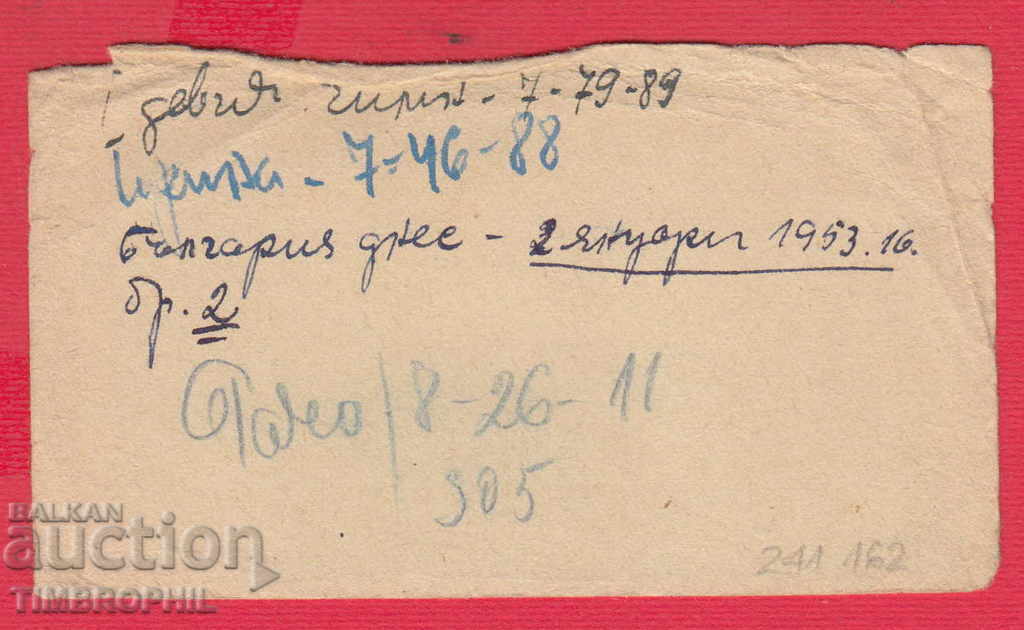 I девич. гимн. - 7-79-89
- 7-46-88
България днес - 2 януари 1953. 16.
бр. 2
8-26-11
305
241 162
BALKAN
auction
TIMBROPHIL